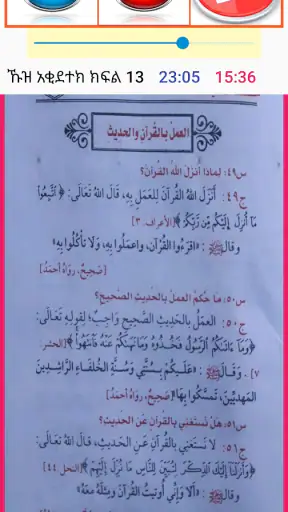 ኹዝ አቂደተክ ክፍል 13 23:05 15:36
العمل بالقرآن والحديث
س٤٩: لماذا أنزل الله القرآن؟
ج٤٩: أَنْزَلَ اللهُ القُرآنَ لِلعَمَلِ بِهِ، قَالَ اللهُ تَعَالَى: ﴿ٱتَّبِعُوا۟
مَآ أُنزِلَ إِلَيْكُم مِّن رَّبِّكُمْ﴾ [الأعراف: ٣]
وقال ﷺ: «اقرَءُوا القُرآنَ، واعمَلُوا بِهِ، وَلَا تَأْكُلُوا بِهِ»
[صَحِيحٌ، رَوَاهُ أحمَدُ]
س٥٠: مَا حُكمُ العمَلُ بالحَدِيثِ الصَّحِيحِ؟
ج٥٠: العمَلُ بالحَدِيثِ الصَّحِيحِ وَاجِبٌ؛ لِقولِهِ تَعَالَى:
﴿وَمَآ ءَاتَىٰكُمُ ٱلرَّسُولُ فَخُذُوهُ وَمَا نَهَىٰكُمْ عَنْهُ فَٱنتَهُوا۟﴾ [الحشر:
٧]. وقَالَ ﷺ: «عَلَيكُم بِسُنَّتِي وَسُنَّةِ الخُلفَاءِ الرَّاشِدِينَ
المَهدِيِّينَ، تَمَسَّكُوا بِهَا» [صَحِيحٌ، رَوَاهُ أحمَدُ]
س٥١: هَل نَستَغنِي بالقرآنِ عَنِ الحَدِيثِ؟
ج٥١: لَا نَستَغنِي بِالقُرآنِ عَنِ الحَدِيثِ، قَالَ اللهُ تَعَالَى:
﴿وَأَنزَلْنَآ إِلَيْكَ ٱلذِّكْرَ لِتُبَيِّنَ لِلنَّاسِ مَا نُزِّلَ إِلَيْهِمْ﴾ [النحل: ٤٤]
وقَالَ ﷺ: «أَلَا وَإِنِّي أُوتِيتُ القُرآنَ ومِثْلَهُ مَعَهُ»